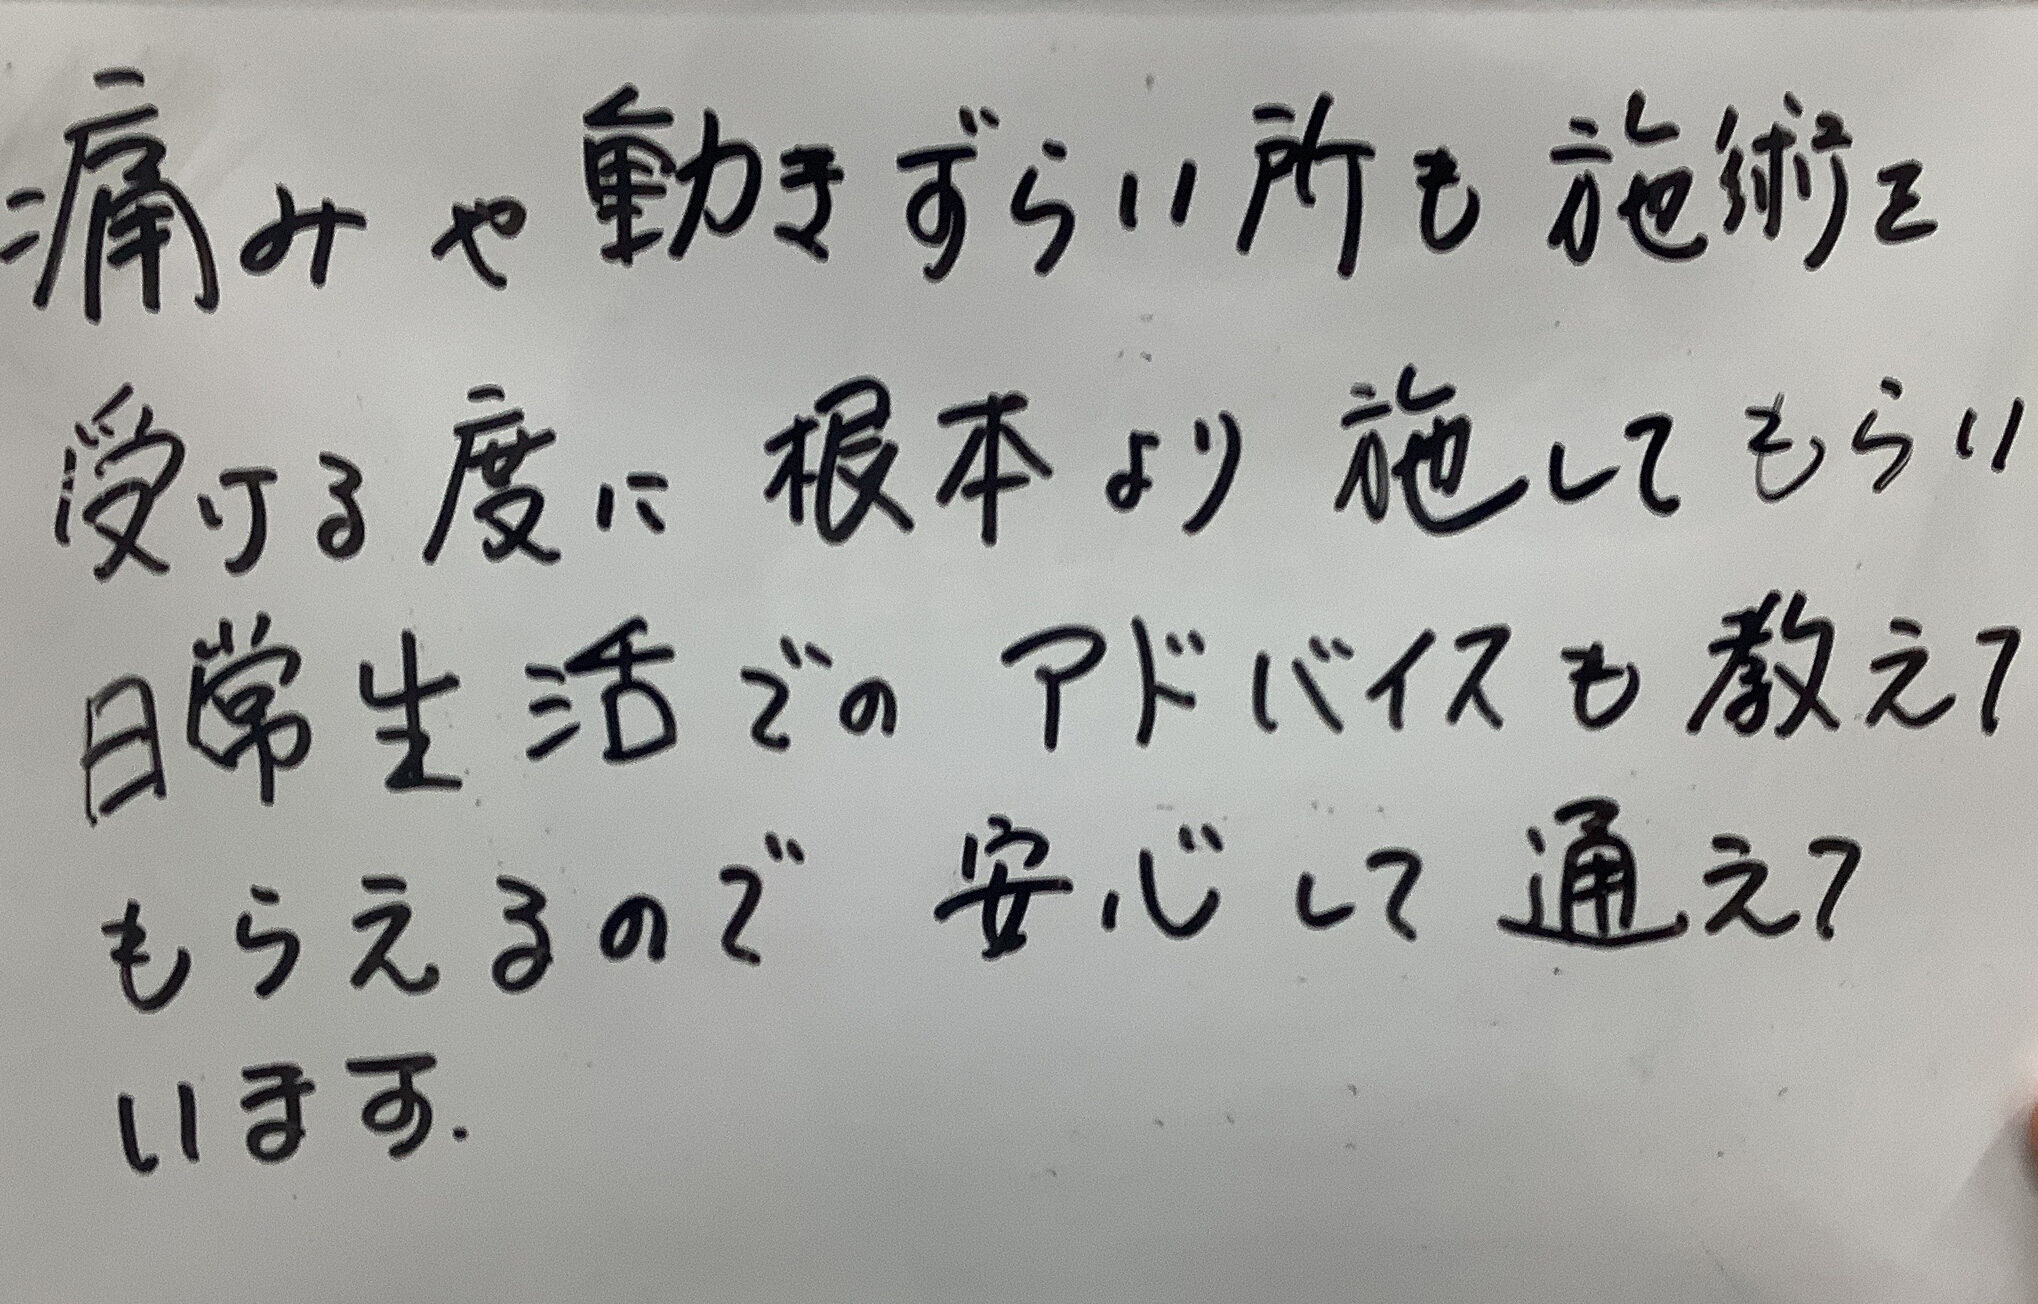 痛みや動きずらい所も施術を
受ける度に根本より施してもらい
日常生活でのアドバイスも教えて
もらえるので安心して通えて
います.